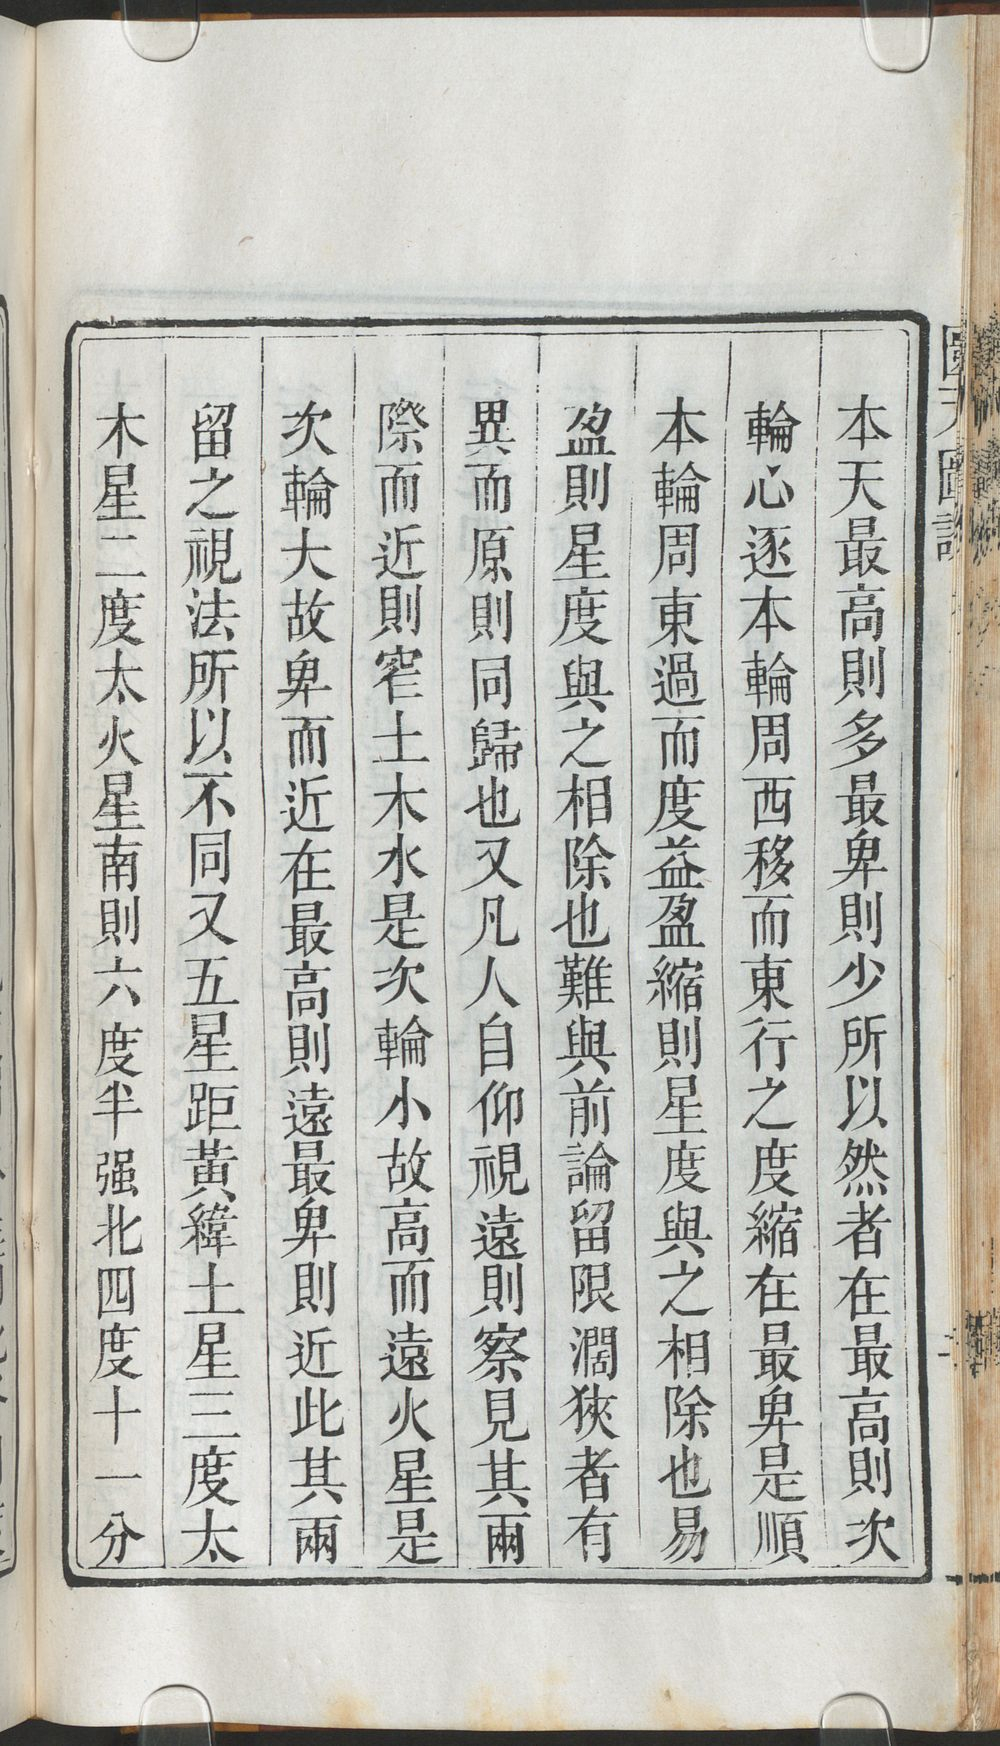 本天最高則多最卑則少所以然者在最高則次
輪心逐本輪周西移而東行之度縮在最卑是順
本輪周東過而度益盈縮則星度與之相除也易
盈則星度與之相除也難與前論留限濶狹者有
異而原則同歸也又凡人自仰視遠則察見其兩
際而近則窄土木水是次輪小故高而遠火星是
次輪大故卑而近在最高則遠最卑則近此其兩
留之視法所以不同又五星距黃緯土星三度太
木星二度太火星南則六度半强北四度十一分